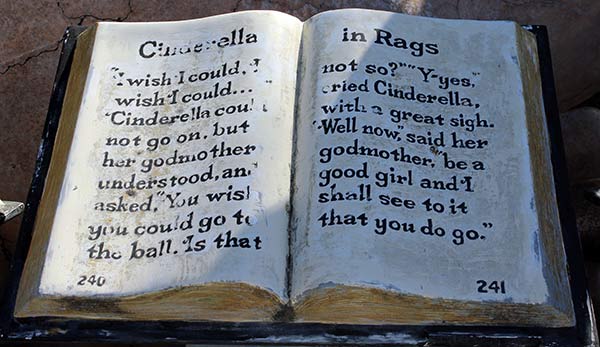 Cinderella
"I wish I could, I
wish I could...
"Cinderella could
not go on, but
her godmother
understood, and
asked, "You wish
you could go to
the ball. Is that
240
in Rags
not so?" "Y-yes,"
cried Cinderella,
with a great sigh.
"Well now," said her
godmother, "be a
good girl and I
shall see to it
that you do go."
241